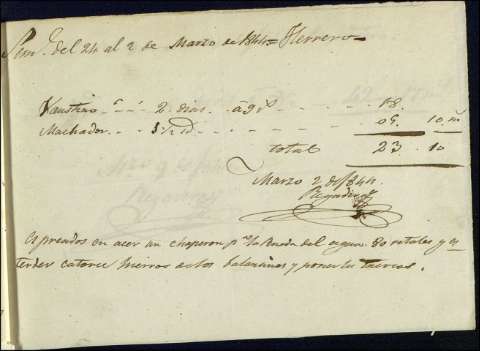 Sem.ª del 24 al 2 de Marzo de 1844= Herrero=
Faustino - - - 2 dias - - a 9 r.ˢ - - - - - 18.
Machador - - - 3 1/2 id - - - - - - - - 05. 10 m
total 23 . 10
Marzo 2 de 1844.
en acer un chaperon p.ª la Rueda del agua. 80 rotales y es
tender catorce hierros de los balancines y ponerles tuercas.